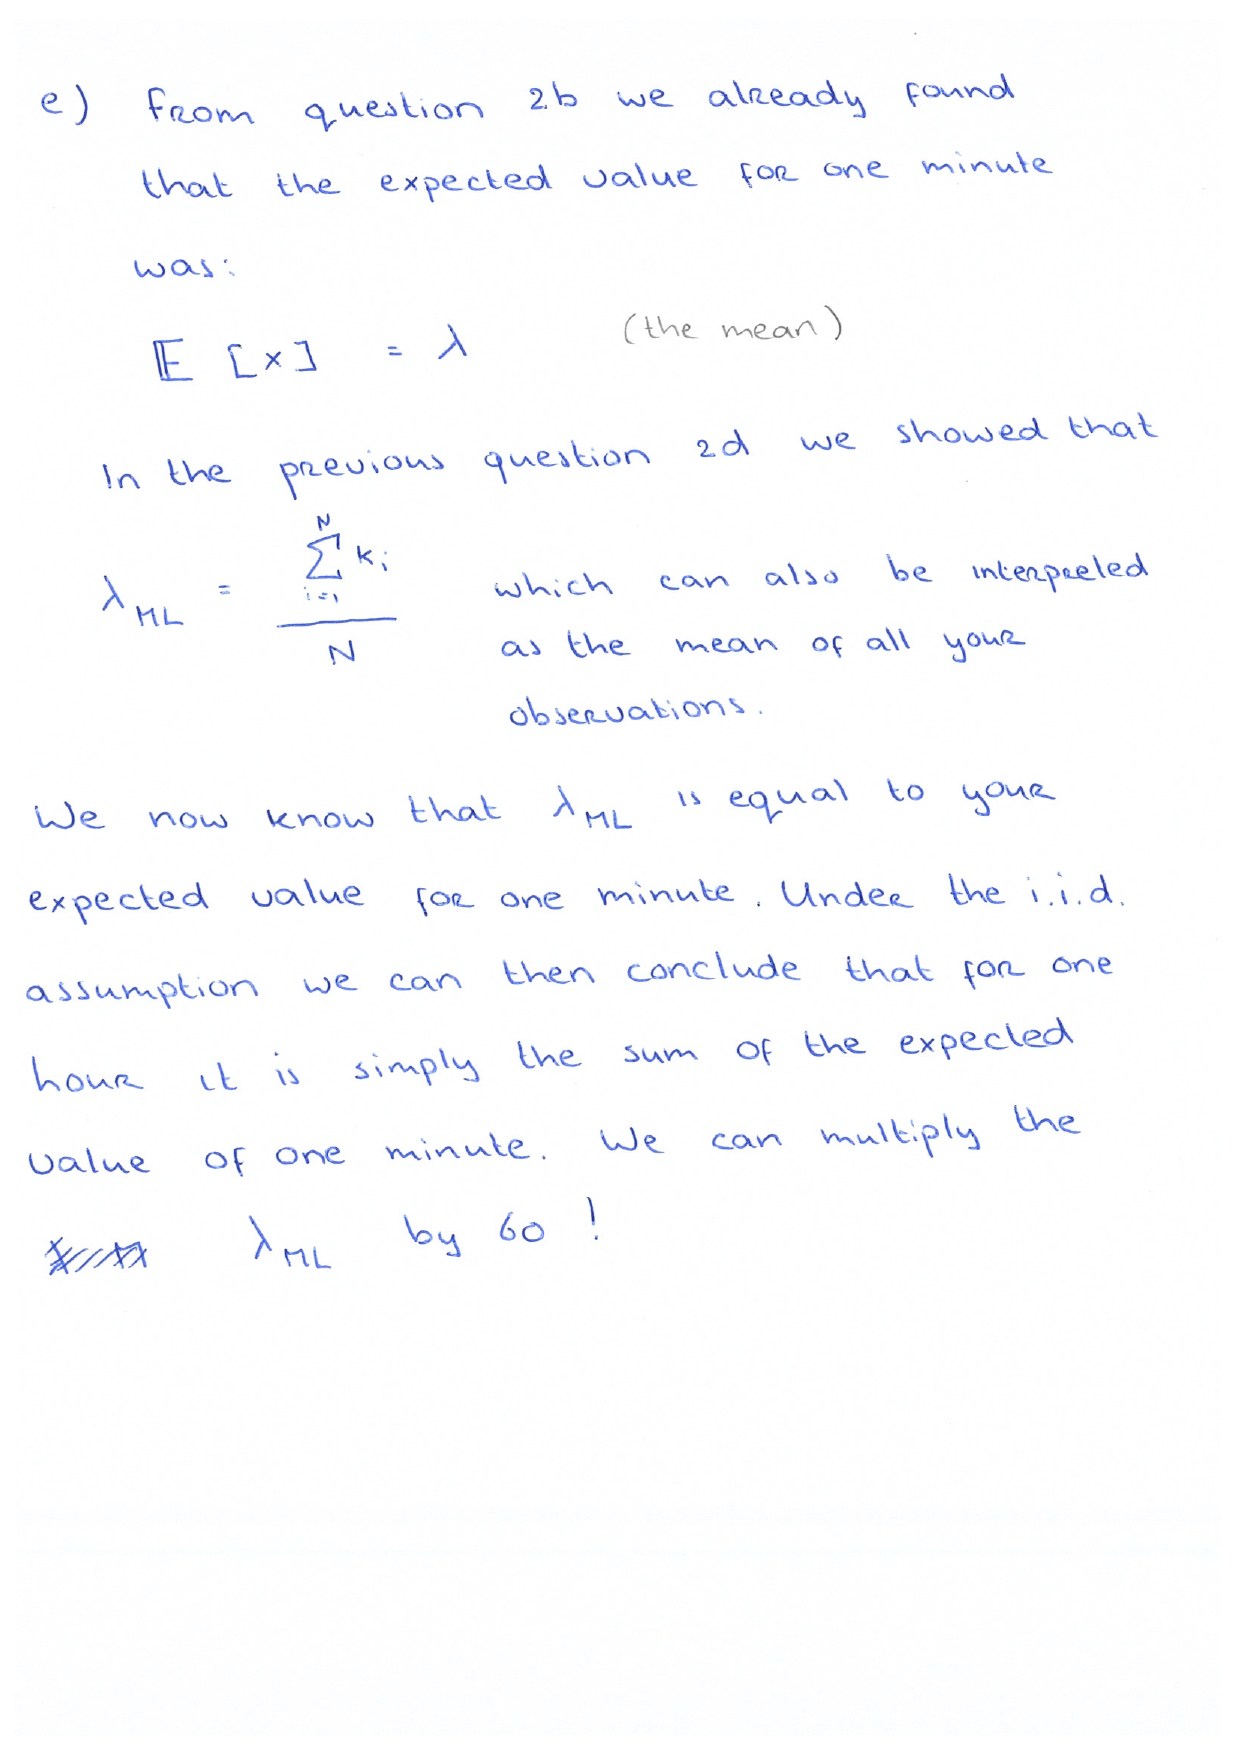 e) From question 2b we already found
that the expected value for one minute
was:
𝔼 [x] = λ (the mean)
In the previous question 2d we showed that
λ_ML = \frac{\sum_{i=1}^{N} k_i}{N} which can also be interpreted
as the mean of all your
observations.
We now know that λ_ML is equal to your
expected value for one minute. Under the i.i.d.
assumption we can then conclude that for one
hour it is simply the sum of the expected
value of one minute. We can multiply the
λ_ML by 60 !